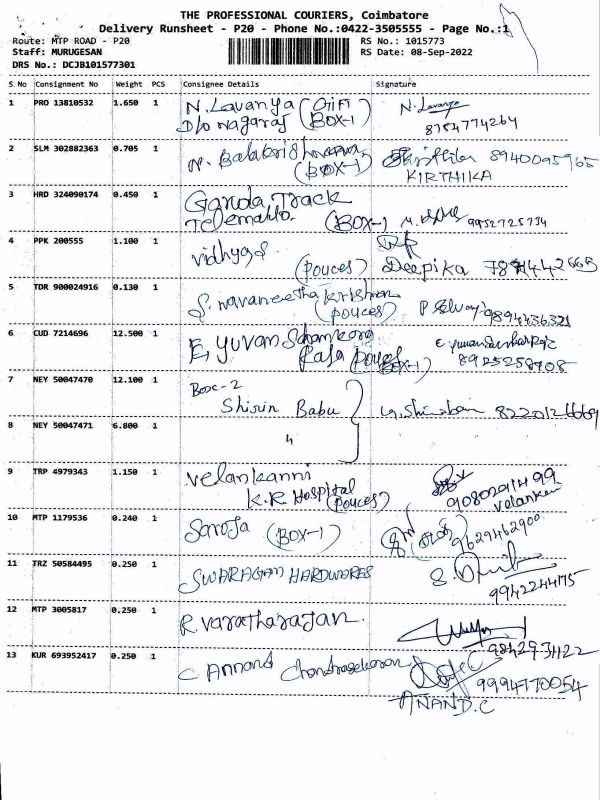 THE PROFESSIONAL COURIERS, Coimbatore
Delivery Runsheet - P20 - Phone No.:0422-3505555 - Page No.:1
Route: MTP ROAD - P20 RS No.: 1015773
Staff: MURUGESAN RS Date: 08-Sep-2022
DRS No.: DCJB101577301
S.No Consignment No Weight PCS Consignee Details Signature
1 PRO 13810532 1.650 1 N. Lavanya (Gift N. Lavanya
D/o Nagaraj BOX-1) 8754774264
2 SLM 302882363 0.705 1 N. Balakrishnan 8940095965
(BOX-1) KIRTHIKA
3 HRD 324090174 0.450 1 Garuda Track
(BOX-1) 9952725734
4 PPK 200555 1.100 1 Vidhya S
(Pouces) Deepika
5 TDR 900024916 0.130 1 S. Navaneetha Krishnan
(Pouces) P Selvaraj 9894436321
6 CUD 7214696 12.500 1 E, Yuvan Sankara
Raja Pouces BOX-1) 8925258708
7 NEY 50047470 12.100 1 Box-2
Shirin Babu
8 NEY 50047471 6.800 1 "
9 TRP 4979343 1.150 1 Velankanni
K.R Hospital 9080291499
(Pouces)
10 MTP 1179536 0.240 1 Saroja (BOX-1) 9629462900
11 TRZ 50584495 0.250 1 SWARAGAM HARDWARES
9942244175
12 MTP 3005817 0.250 1 R varatharajan.
13 KUR 693952417 0.250 1 C Annand Chandrasekaran
9994770054
ANAND.C